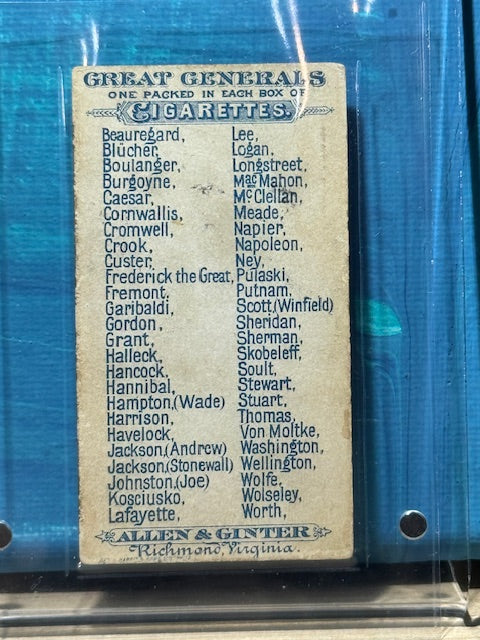 GREAT GENERALS
ONE PACKED IN EACH BOX OF
CIGARETTES.
Beauregard,
Blücher,
Boulanger,
Burgoyne,
Caesar,
Cornwallis,
Cromwell,
Crook,
Custer,
Frederick the Great,
Fremont,
Garibaldi,
Gordon,
Grant,
Halleck,
Hancock,
Hannibal,
Hampton,(Wade)
Harrison,
Havelock,
Jackson,(Andrew)
Jackson,(Stonewall)
Johnston,(Joe)
Kosciusko,
Lafayette,
Lee,
Logan,
Longstreet,
MacMahon,
McClellan,
Meade,
Napier,
Napoleon,
Ney,
Pulaski,
Putnam,
Scott,(Winfield)
Sheridan,
Sherman,
Skobeleff,
Soult,
Stewart,
Stuart,
Thomas,
Von Moltke,
Washington,
Wellington,
Wolfe,
Wolseley,
Worth,
ALLEN & GINTER
Richmond, Virginia.